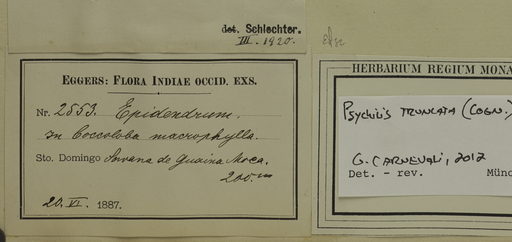 det. Schlechter.
III. 1920.
EGGERS: FLORA INDIAE OCCID. EXS.
Nr. 2553. Epidendrum.
In Coccoloba macrophylla.
Sto. Domingo Savana de Guaina Moca,
200 m
20. VI. 1887.
HERBARIUM REGIUM MONA
PSYCHILIS TRUNCATA (COGN.)
G. CARNEVALI, 2012
Det. - rev. Münc